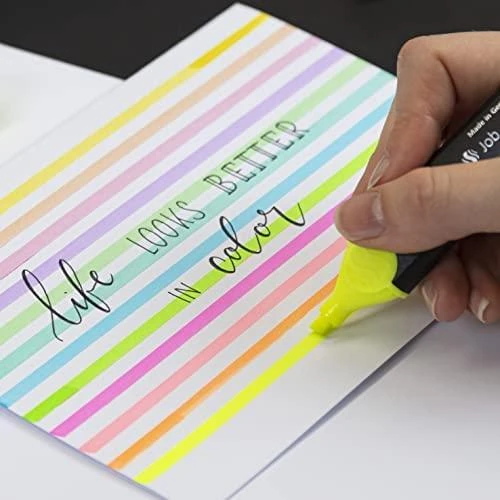 life LOOKS BETTER
IN color
Made in Ge
Job